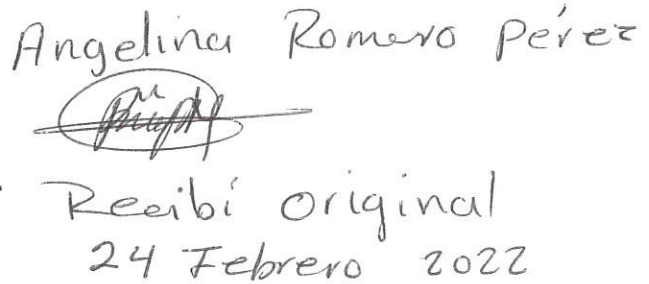 Angelina Romero Pérez
Recibí original
24 Febrero 2022